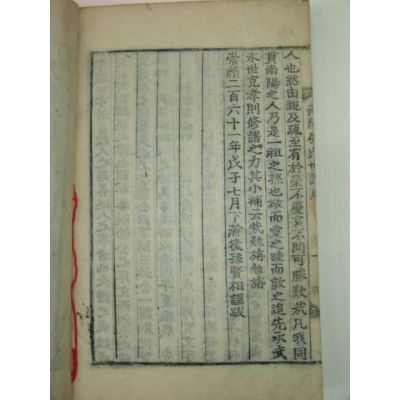 人也然由親及疏至有於榮不慶哀不問可勝歎哉凡我同
貫南陽之人乃是一祖之孫也敬而愛之睦而敦之追先承武
永世克孝則修譜之力其小補云哉勉旃勉旃
崇禎二百六十一年戊子七月下瀚後孫賢相謹跋